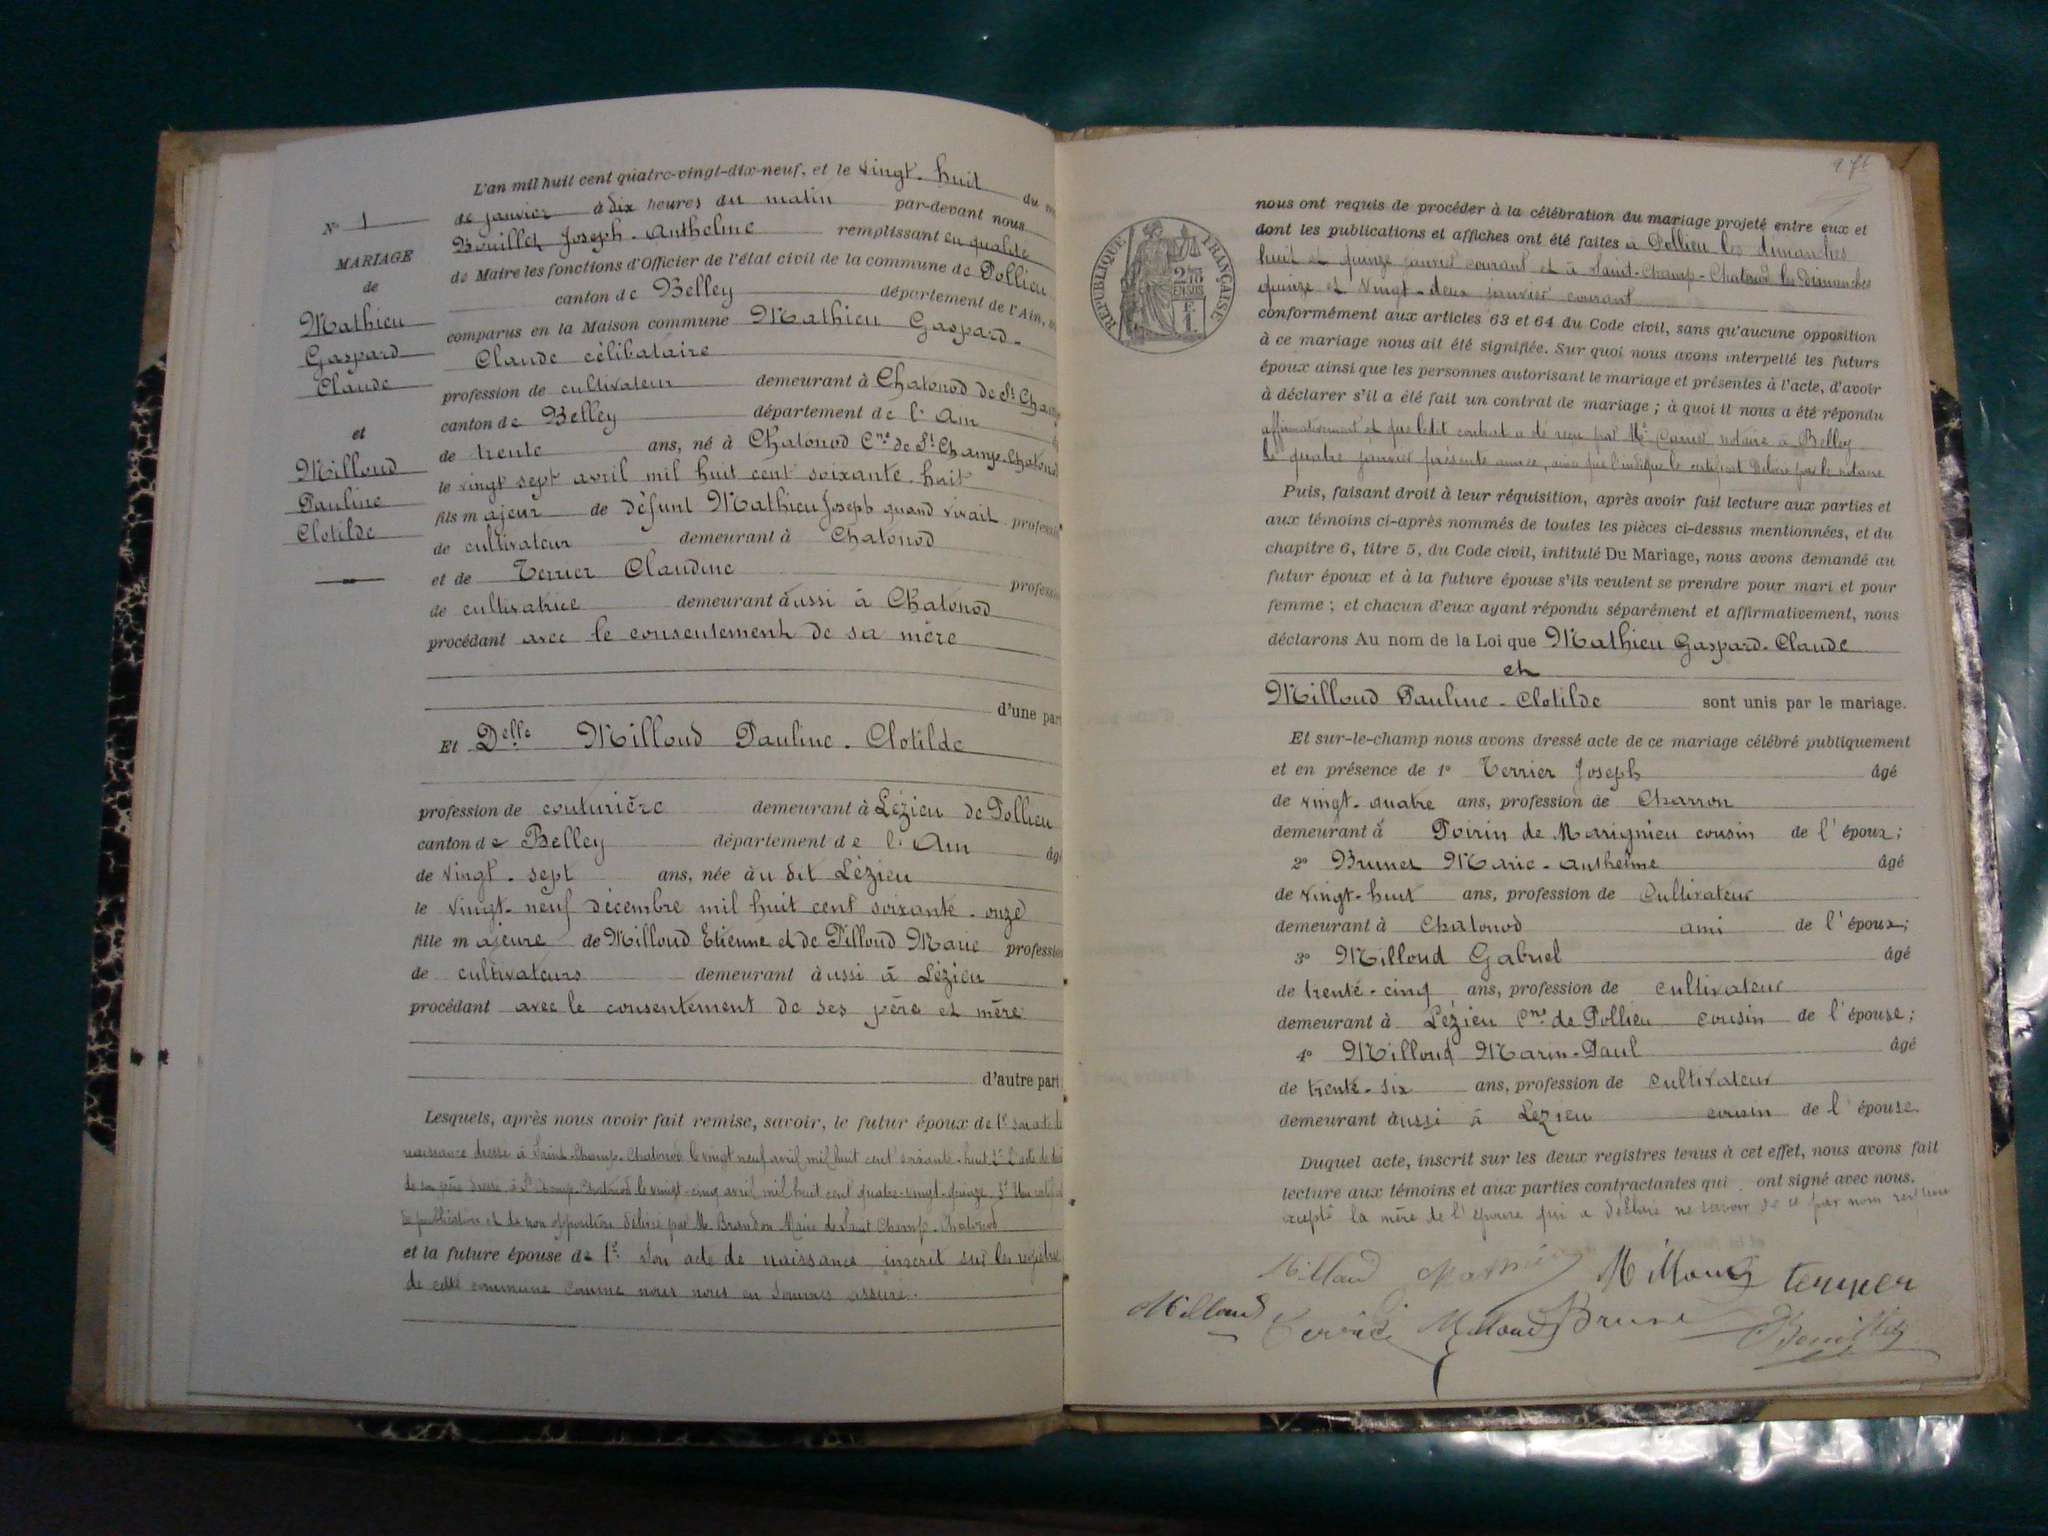 L'an mil huit cent quatre-vingt-dix-neuf, et le vingt-huit du
de janvier à dix heures du matin par-devant nous
Bouillet Joseph-Anthelme remplissant en qualité
de Maire les fonctions d'Officier de l'état civil de la commune de Pollieu
canton de Belley département de l'Ain,
comparus en la Maison commune Mathieu Gaspard-
Claude célibataire
profession de cultivateur demeurant à Chatonod de St Champ
canton de Belley département de l'Ain
de trente ans, né à Chatonod Cne de St Champ-Chatonod
le vingt sept avril mil huit cent soixante-huit
fils majeur de défunt Mathieu Joseph quand vivait profession
de cultivateur demeurant à Chatonod
et de Terrier Claudine profession
de cultivatrice demeurant aussi à Chatonod
procédant avec le consentement de sa mère
d'une part
Et Delle Milloud Pauline-Clotilde
profession de couturière demeurant à Lézieu de Pollieu
canton de Belley département de l'Ain âgé
de vingt-sept ans, née au dit Lézieu
le vingt-neuf décembre mil huit cent soixante-onze
fille majeure de Milloud Etienne et de Pilloud Marie profession
de cultivateurs demeurant aussi à Lézieu
procédant avec le consentement de ses père et mère
d'autre part
Lesquels, après nous avoir fait remise, savoir, le futur époux de 1° son acte de
naissance dressé à Saint-Champ-Chatonod le vingt neuf avril mil huit cent soixante-huit 2° l'acte de
de son père dressé à St Champ-Chatonod le vingt-cinq avril mil huit cent quatre-vingt-quinze 3° Un
de publication et de non opposition délivré par M. Brandon Maire de Saint Champ-Chatonod
et la future épouse de 1° Son acte de naissance inscrit sur les registres
de cette commune comme nous nous en sommes assuré.
N° 1
MARIAGE
de
Mathieu
Gaspard
Claude
et
Milloud
Pauline
Clotilde
RÉPUBLIQUE FRANÇAISE
2/10 EN SUS
F. 1.
nous ont requis de procéder à la célébration du mariage projeté entre eux et
dont les publications et affiches ont été faites à Pollieu les dimanches
huit et quinze janvier courant et à Saint-Champ-Chatonod les Dimanches
quinze et vingt-deux janvier courant
conformément aux articles 63 et 64 du Code civil, sans qu'aucune opposition
à ce mariage nous ait été signifiée. Sur quoi nous avons interpellé les futurs
époux ainsi que les personnes autorisant le mariage et présentes à l'acte, d'avoir
à déclarer s'il a été fait un contrat de mariage ; à quoi il nous a été répondu
affirmativement et que ledit contrat a été reçu par Me notaire à Belley
le quatre janvier présente année, ainsi que l'indique le certificat délivré par le notaire
Puis, faisant droit à leur réquisition, après avoir fait lecture aux parties et
aux témoins ci-après nommés de toutes les pièces ci-dessus mentionnées, et du
chapitre 6, titre 5, du Code civil, intitulé Du Mariage, nous avons demandé au
futur époux et à la future épouse s'ils veulent se prendre pour mari et pour
femme ; et chacun d'eux ayant répondu séparément et affirmativement, nous
déclarons Au nom de la Loi que Mathieu Gaspard-Claude
et
Milloud Pauline-Clotilde sont unis par le mariage.
Et sur-le-champ nous avons dressé acte de ce mariage célébré publiquement
et en présence de 1° Terrier Joseph âgé
de vingt-quatre ans, profession de Charron
demeurant à Poirin de Marignieu cousin de l'époux ;
2° Brunet Marie-Anthelme âgé
de vingt-huit ans, profession de Cultivateur
demeurant à Chatonod ami de l'époux ;
3° Milloud Gabriel âgé
de trente-cinq ans, profession de cultivateur
demeurant à Lézieu Cne de Pollieu cousin de l'épouse ;
4° Milloud Marin-Paul âgé
de trente-six ans, profession de cultivateur
demeurant aussi à Lézieu cousin de l'épouse.
Duquel acte, inscrit sur les deux registres tenus à cet effet, nous avons fait
lecture aux témoins et aux parties contractantes qui ont signé avec nous.
excepté la mère de l'épouse qui a déclaré ne savoir de ce par nous
Milloud Mathieu Milloud terrier
Milloud Milloud Brunet Bouillet